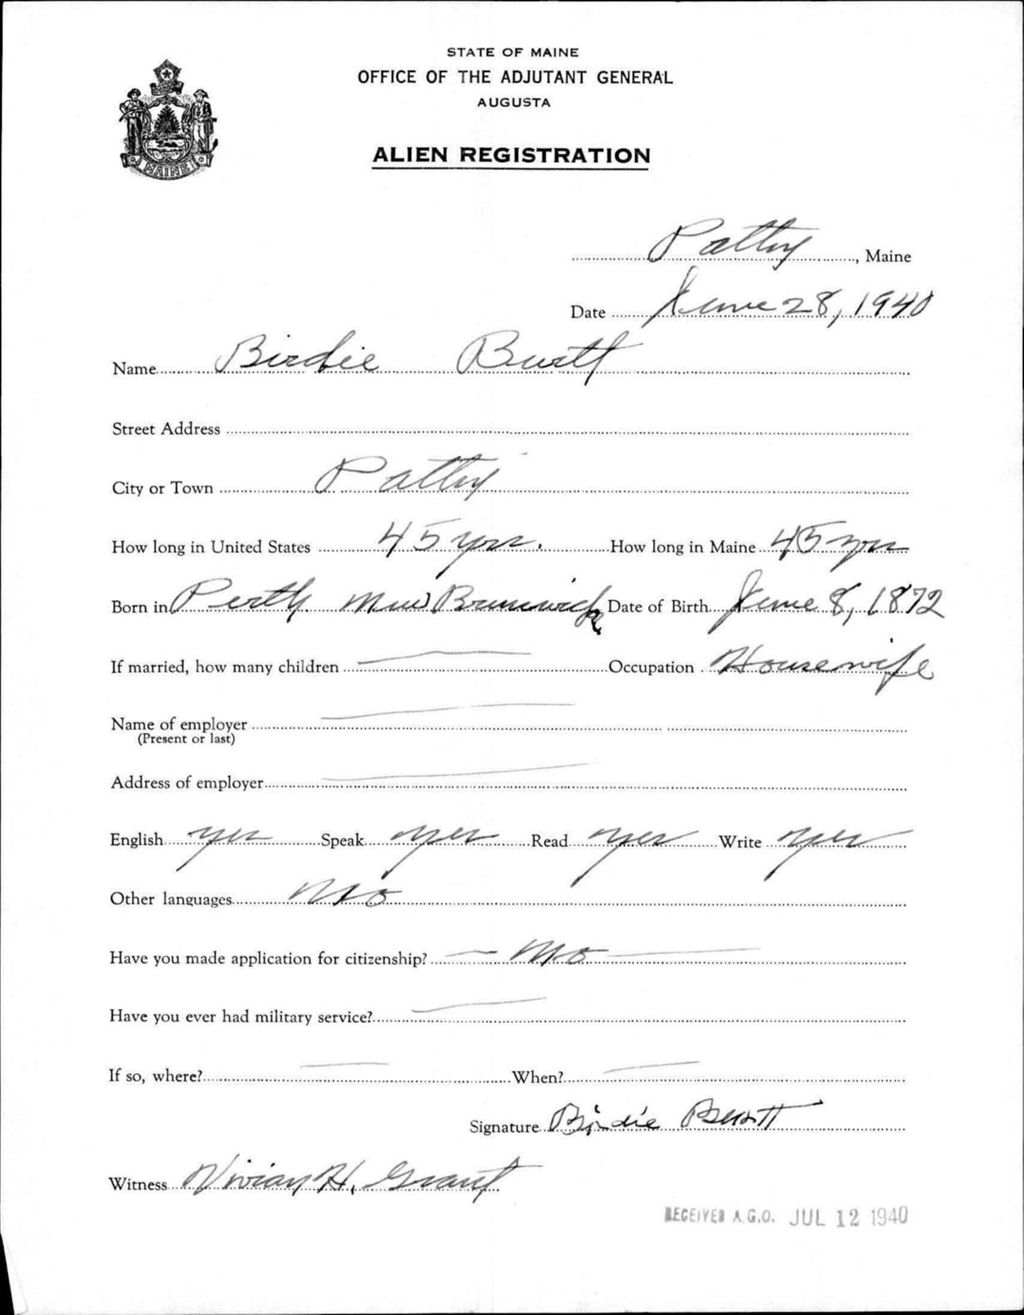 STATE OF MAINE
OFFICE OF THE ADJUTANT GENERAL
AUGUSTA
MAINE
ALIEN REGISTRATION
Patten, Maine
Date June 28, 1940
Name Birdie Burtt
Street Address
City or Town Patten
How long in United States 45 yrs. How long in Maine 45 yrs
Born in Perth New Brunswick Date of Birth June 8, 1872
If married, how many children — Occupation Housewife
Name of employer —
(Present or last)
Address of employer —
English yes Speak yes Read yes Write yes
Other languages No
Have you made application for citizenship? — No —
Have you ever had military service? —
If so, where? — When? —
Signature Birdie Burtt
Witness Vivian H. Grant
RECEIVED A.G.O. JUL 12 1940